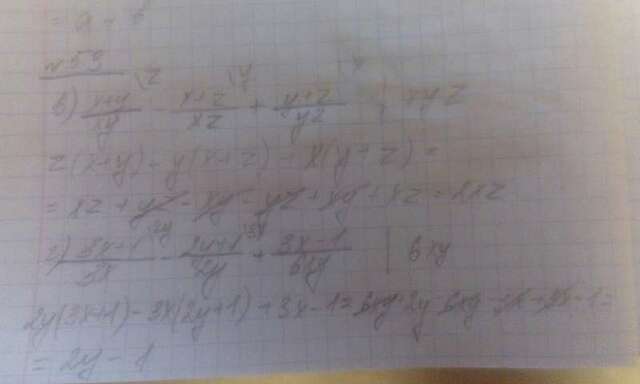 № 59
в) (x+y)/xy \z - (x+z)/xz \y + (y+z)/yz \x | xyz
z(x+y) - y(x+z) + x(y+z) =
= xz + yz - xy - yz + xy + xz = 2xz
г) (3x+1)/3x \2y - (2y+1)/2y \3x + (3x-1)/6xy | 6xy
2y(3x+1) - 3x(2y+1) + 3x - 1 = 6xy + 2y - 6xy - 3x + 3x - 1 =
= 2y - 1